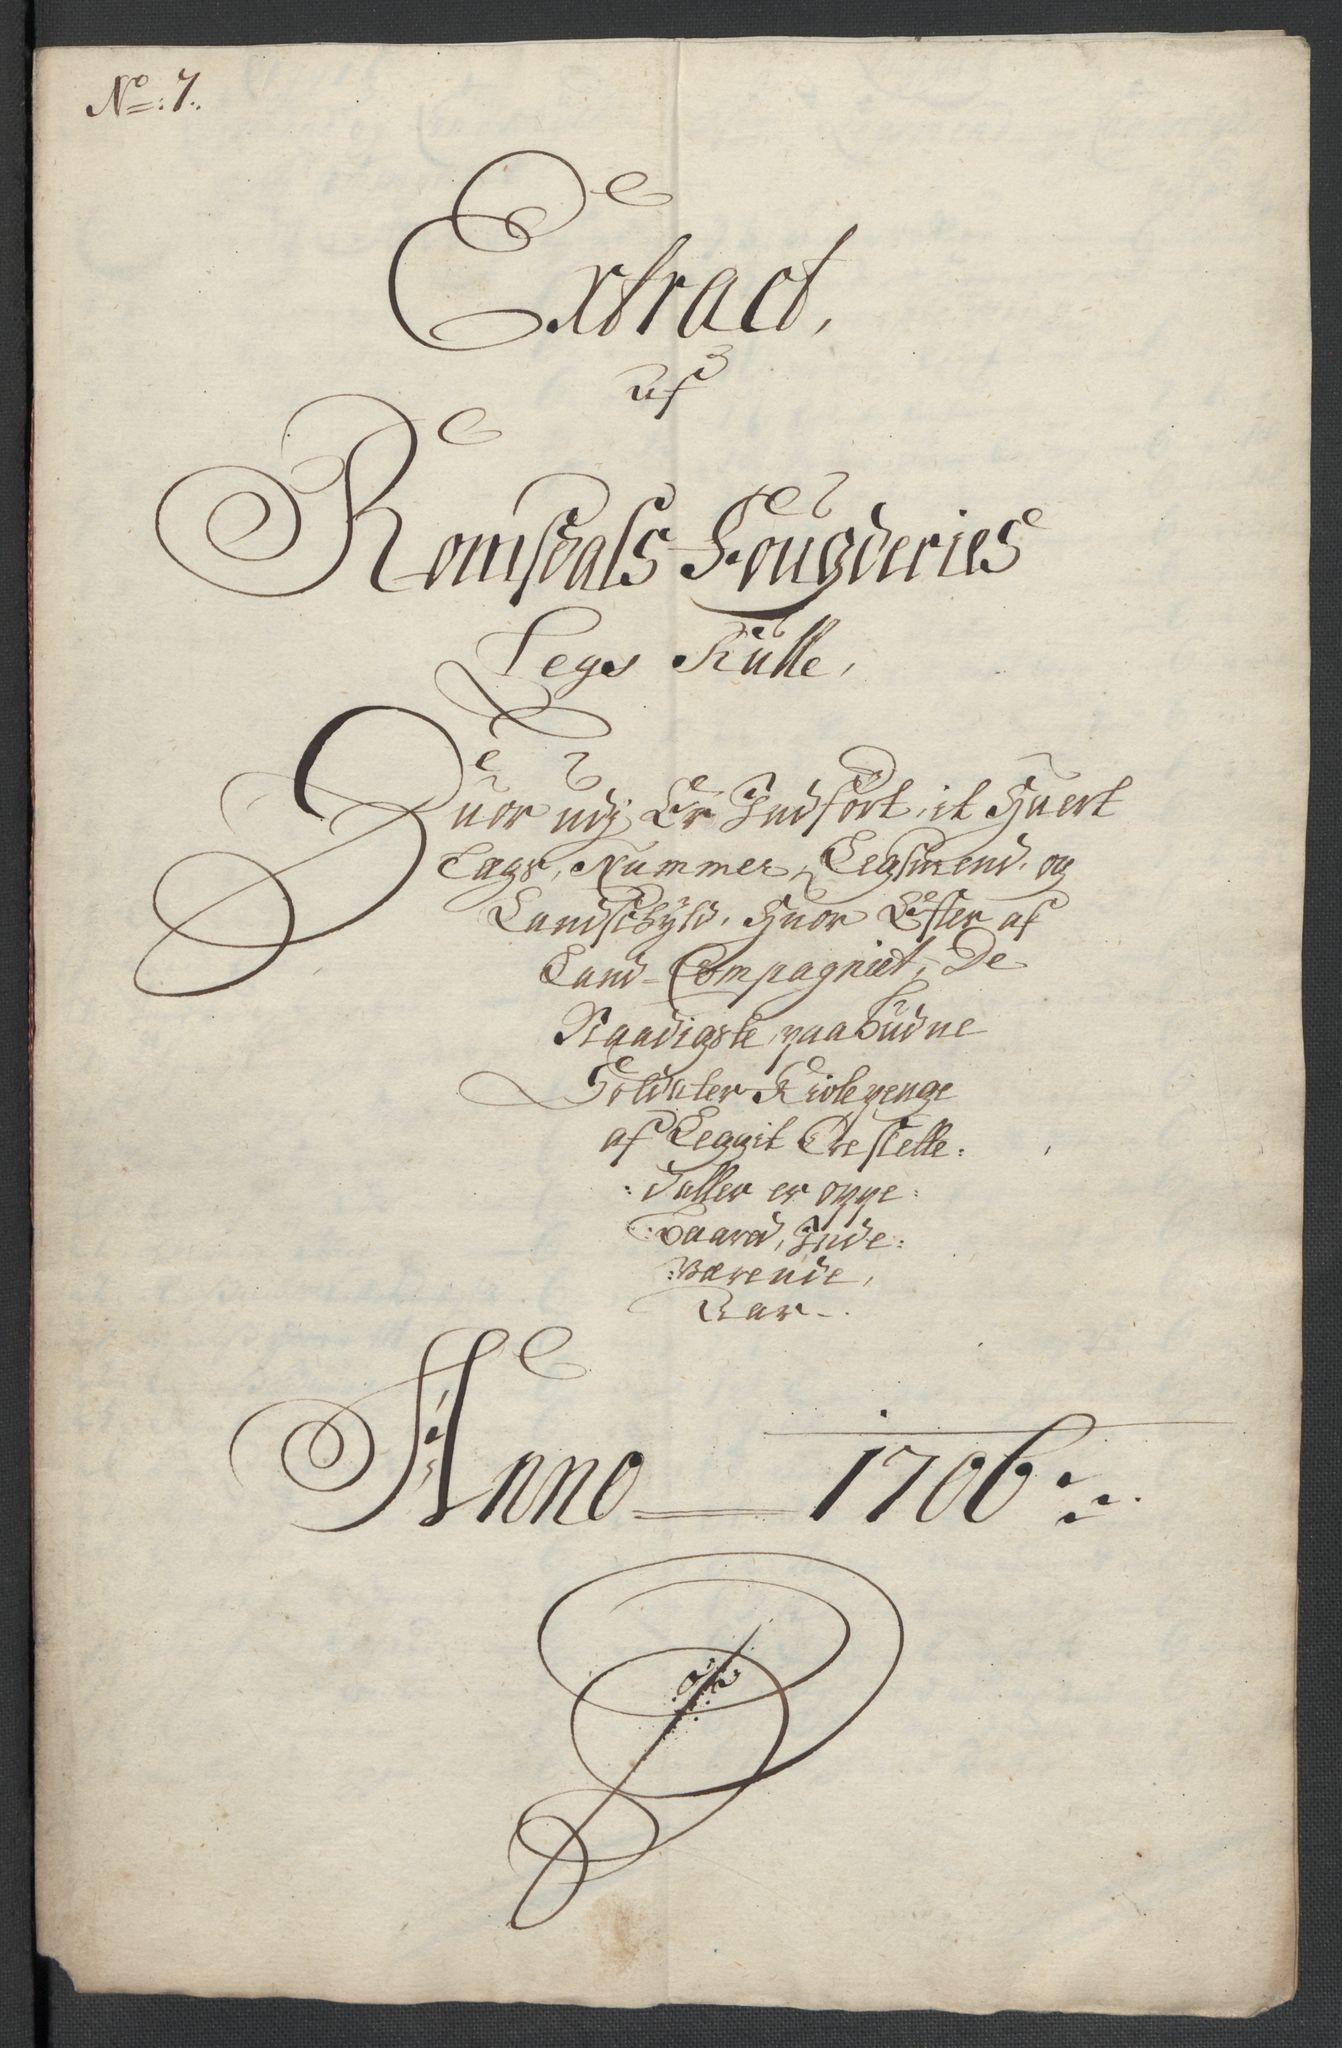 No: 7.
Extract,
af
Romsdals Fougderies
Legs Rulle,
Huor udj Er Indført, it Huert
Lægs, Nummer, Legsmend, og
Landschyld, Huor Efter af
Land-Compagniet, De
Naadigste paabudne
Soldater Kiolepenge
af Leggit
daller er oppe:
baared, Inde:
:Værende,
Aar-.
Anno 1706